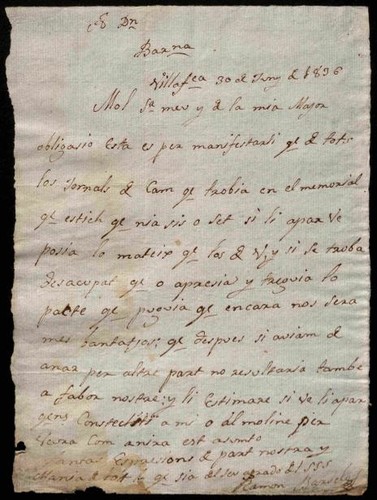 Dn
Barna
Villafca 30 de Juny d 1836
Mol Sr meu y d la mia Major
obligasio Esta es per manifestarli qe d tots
los Jornals d Cam qe trobia en el memorial
qe estich qe nia sis o set si li apar Ve
posia lo mateix qe los d V, y si se troba
desacupat qe o apresia y tregvia lo
parte qe pugvia qe encara nos sera
mes bantatjos; qe despues si aviam d
anar per altre part no resultaria tambe
a fabor nostre; y li Estimare si Ve li apar
gens a mi o al moline per
Veura Com anira est asumto
Espressions d part nostra y
Mansa d tot lo qe sia del seu agrado el SSS
Ramon